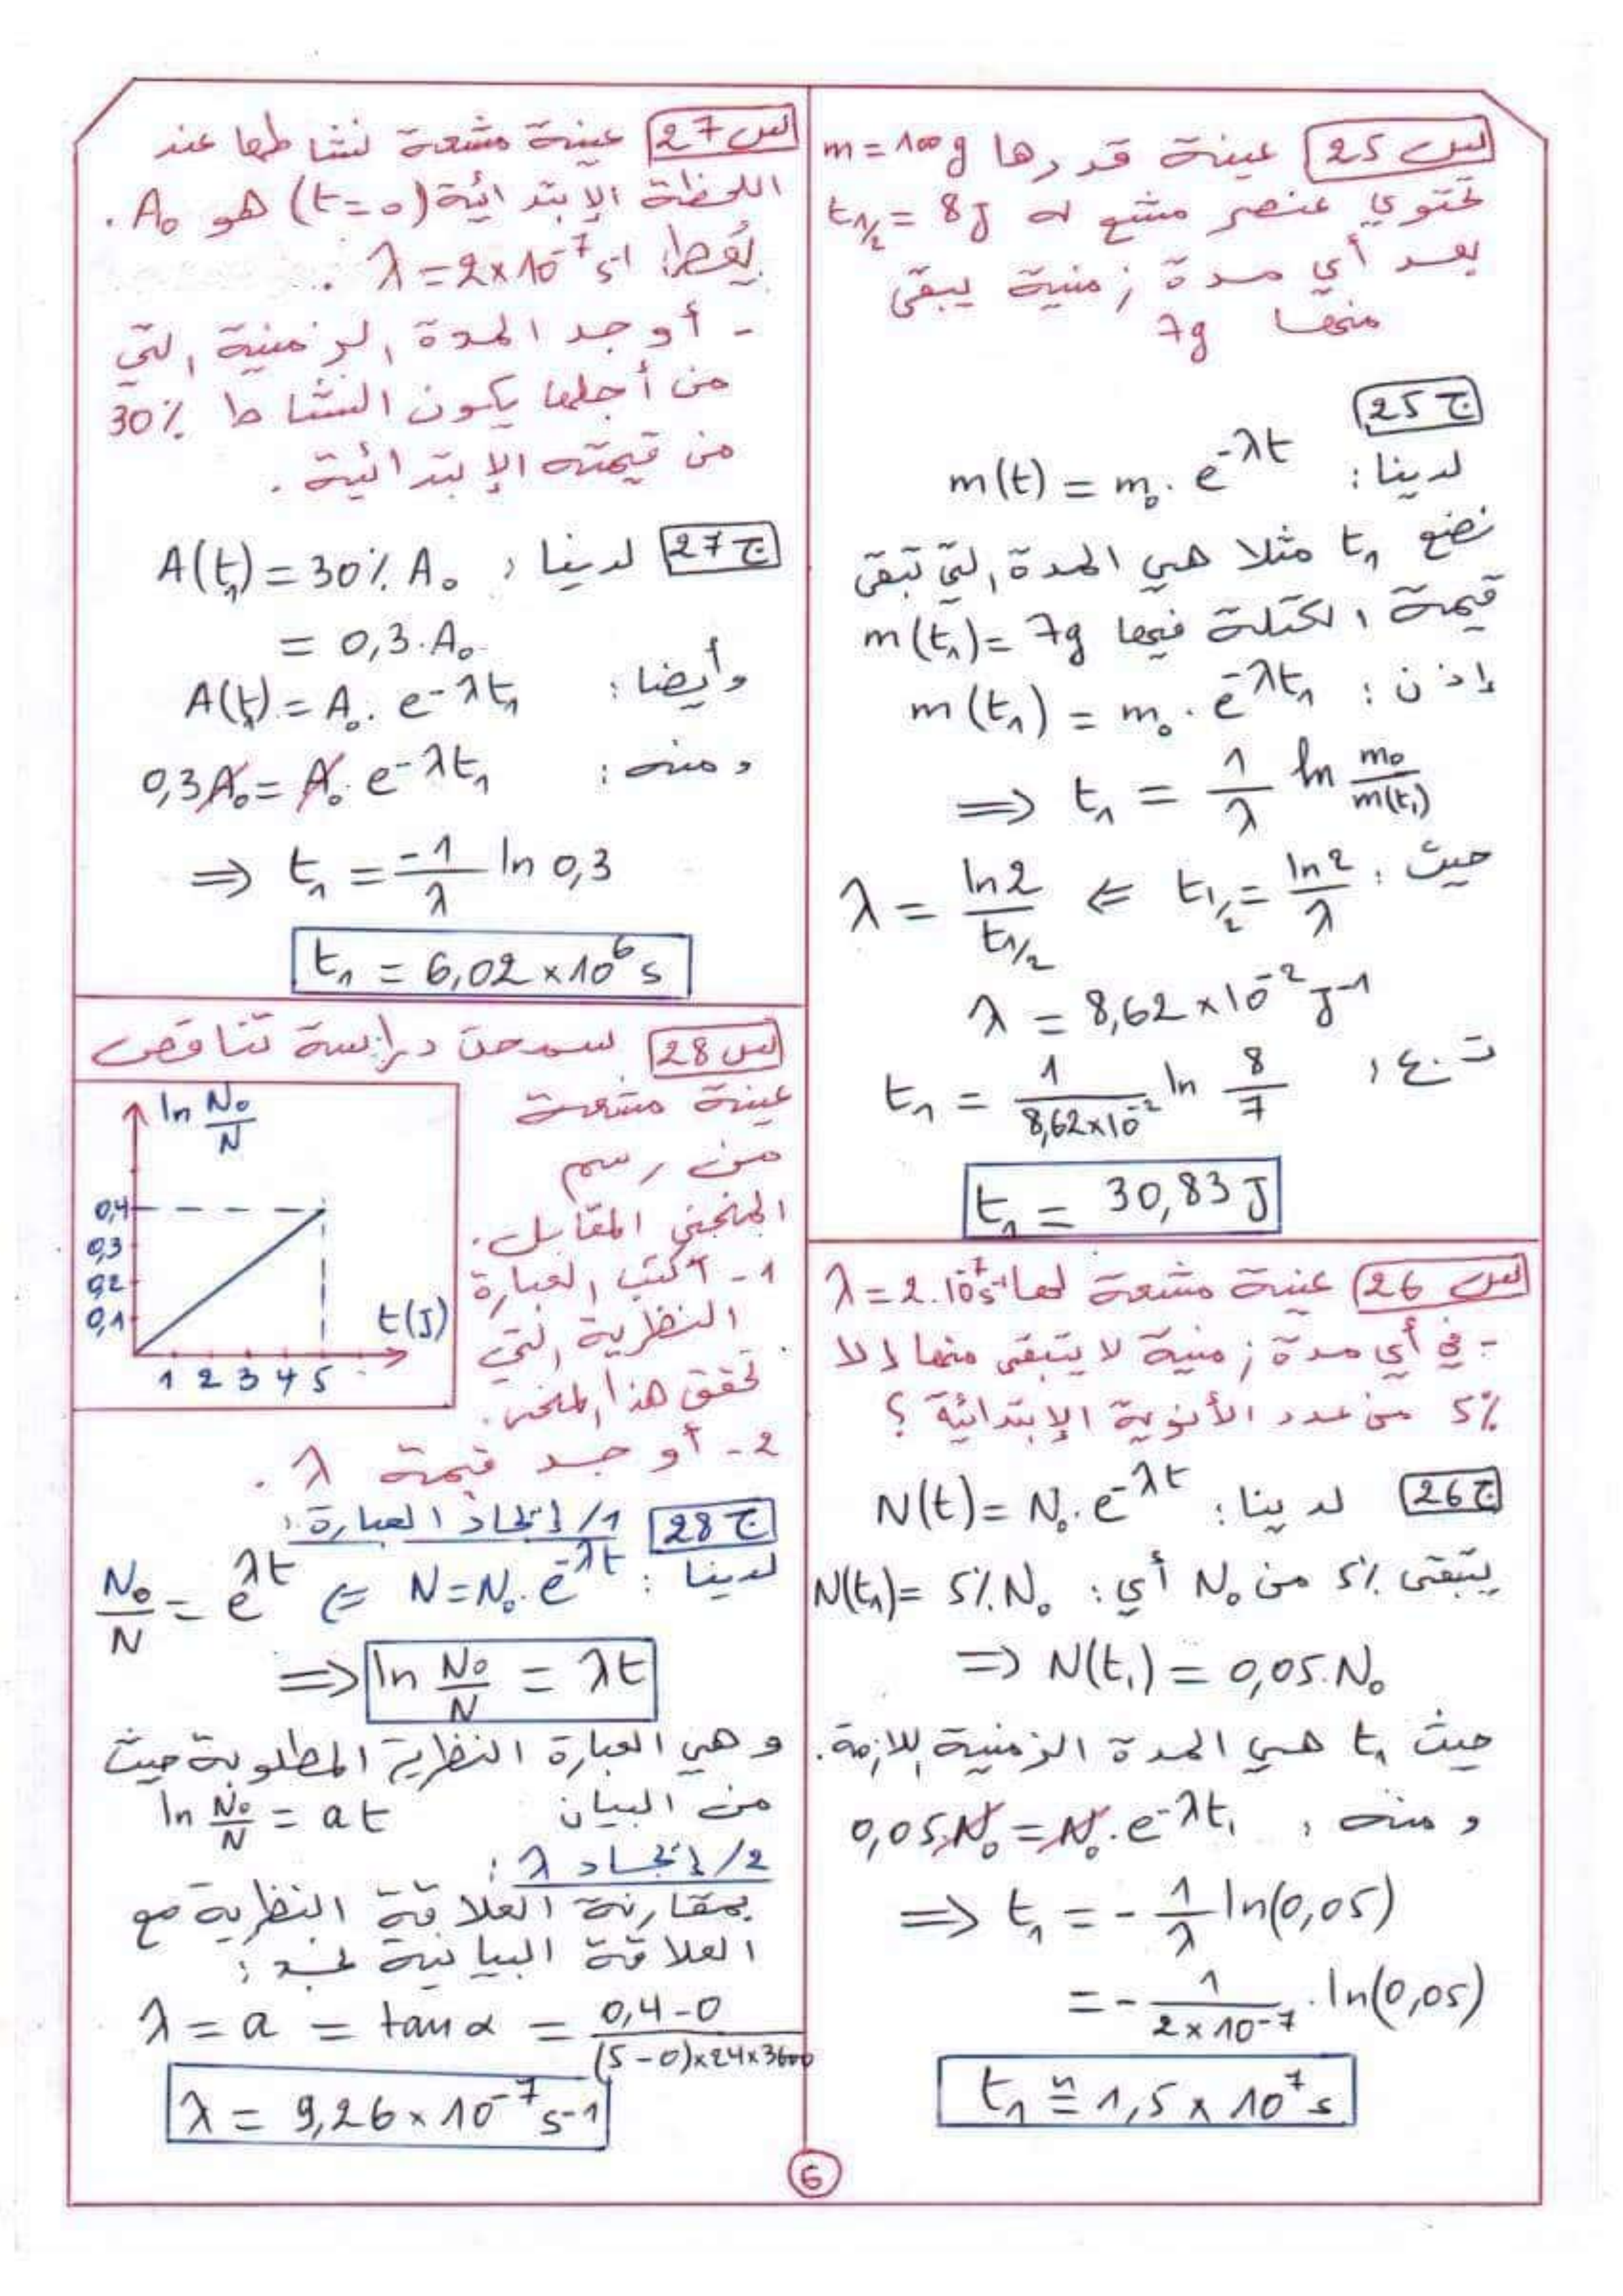 س 25 عينة قدرها m = 100g
تحتوي عنصر مشع له t1/2 = 8J
بعد أي مدة زمنية يبقى
منها 7g
ج 25
لدينا: m(t) = m₀. e^-λt
نضع t₁ مثلا هي المدة التي تبقى
قيمة الكتلة فيها m(t₁) = 7g
إذن: m(t₁) = m₀. e^-λt₁
⇒ t₁ = 1/λ ln m₀/m(t₁)
حيث: t1/2 = ln2/λ ⇐ λ = ln2/t1/2
λ = 8,62 × 10^-2 J^-1
ت.ع: t₁ = 1/8,62×10^-2 ln 8/7
t₁ = 30,83 J
س 26 عينة مشعة لها λ = 2.10^-7 s^-1
- في أي مدة زمنية لا يتبقى منها إلا
5% من عدد الأنوية الإبتدائية؟
ج 26 لدينا: N(t) = N₀. e^-λt
يتبقى 5% من N₀ أي: N(t₁) = 5% N₀
⇒ N(t₁) = 0,05.N₀
حيث t₁ هي المدة الزمنية اللازمة.
ومنه: 0,05N₀ = N₀. e^-λt₁
⇒ t₁ = - 1/λ ln(0,05)
= - 1/2×10^-7 . ln(0,05)
t₁ ≃ 1,5 × 10^7 s
س 27 عينة مشعة نشاطها عند
اللحظة الإبتدائية (t=0) هو A₀.
يُعطى: λ = 2×10^-7 s^-1.
- أوجد المدة الزمنية التي
من أجلها يكون النشاط 30%
من قيمته الإبتدائية.
ج 27 لدينا: A(t₁) = 30% A₀
= 0,3.A₀
وأيضا: A(t₁) = A₀. e^-λt₁
ومنه: 0,3A₀ = A₀. e^-λt₁
⇒ t₁ = -1/λ ln 0,3
t₁ = 6,02 × 10^6 s
س 28 سمحت دراسة تناقص
عينة مشعة
من رسم
المنحنى المقابل.
1- أكتب العبارة
النظرية التي
تحقق هذا المنحنى.
2- أوجد قيمة λ.
ln N₀/N
0,4
0,3
0,2
0,1
t(J)
1 2 3 4 5
ج 28 1/ إيجاد العبارة:
لدينا: N = N₀. e^-λt ⇐ N₀/N = e^λt
⇒ ln N₀/N = λt
وهي العبارة النظرية المطلوبة حيث
من البيان ln N₀/N = at
2/ إيجاد λ:
بمقارنة العلاقة النظرية مع
العلاقة البيانية نجد:
λ = a = tan α = 0,4-0/(5-0)×24×3600
λ = 9,26 × 10^-7 s^-1
6